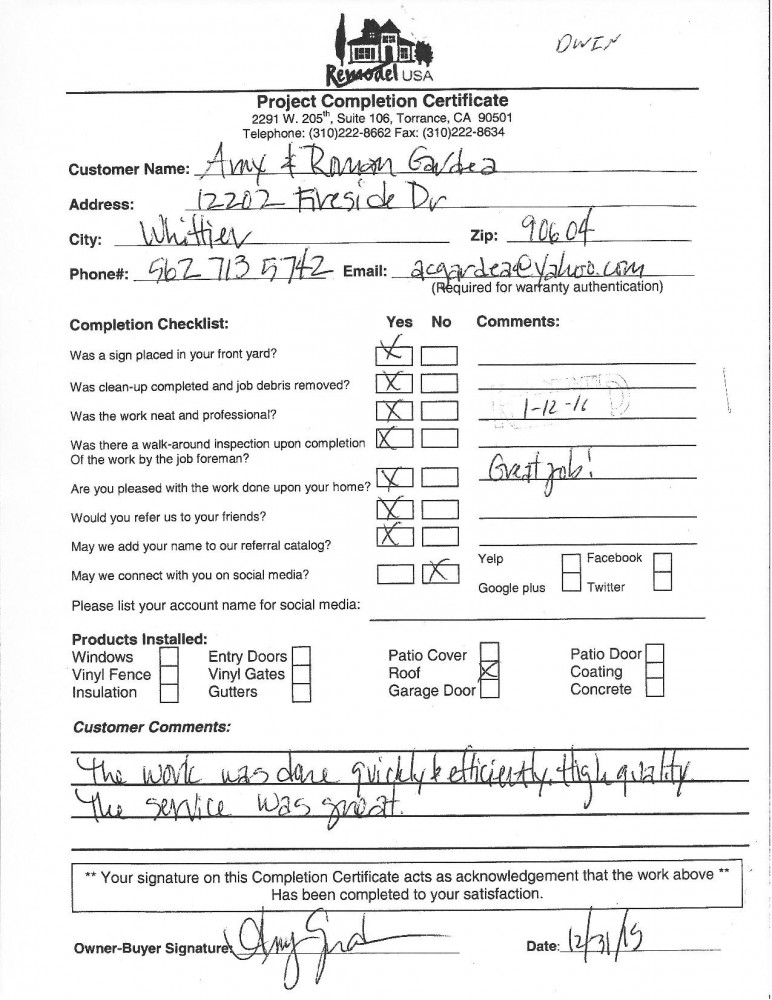 OWEN
Remodel USA
Project Completion Certificate
2291 W. 205th, Suite 106, Torrance, CA 90501
Telephone: (310)222-8662 Fax: (310)222-8634
Customer Name: Amy & Ramon Gardea
Address: 12202 Fireside Dr
City: Whittier Zip: 90604
Phone#: 562 713 5742 Email: acgardea@yahoo.com
(Required for warranty authentication)
Completion Checklist: Yes No Comments:
Was a sign placed in your front yard? X
Was clean-up completed and job debris removed? X
Was the work neat and professional? X 1-12-16
Was there a walk-around inspection upon completion X
Of the work by the job foreman?
Are you pleased with the work done upon your home? X Great job!
Would you refer us to your friends? X
May we add your name to our referral catalog? X
May we connect with you on social media? X
Yelp Facebook
Google plus Twitter
Please list your account name for social media:
Products Installed:
Windows Entry Doors Patio Cover Patio Door
Vinyl Fence Vinyl Gates Roof X Coating
Insulation Gutters Garage Door Concrete
Customer Comments:
The work was done quickly & efficiently. High quality.
The service was great.
** Your signature on this Completion Certificate acts as acknowledgement that the work above **
Has been completed to your satisfaction.
Owner-Buyer Signature: Amy Date: 12/31/15